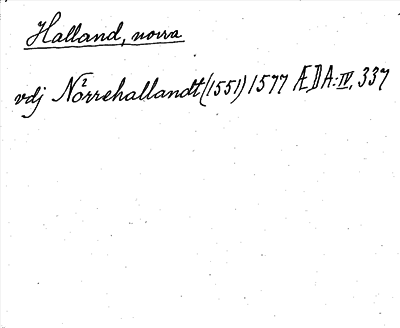 Halland, norra
vdj Nörrehallandt (1551) 1577 ÆDA: IV, 337